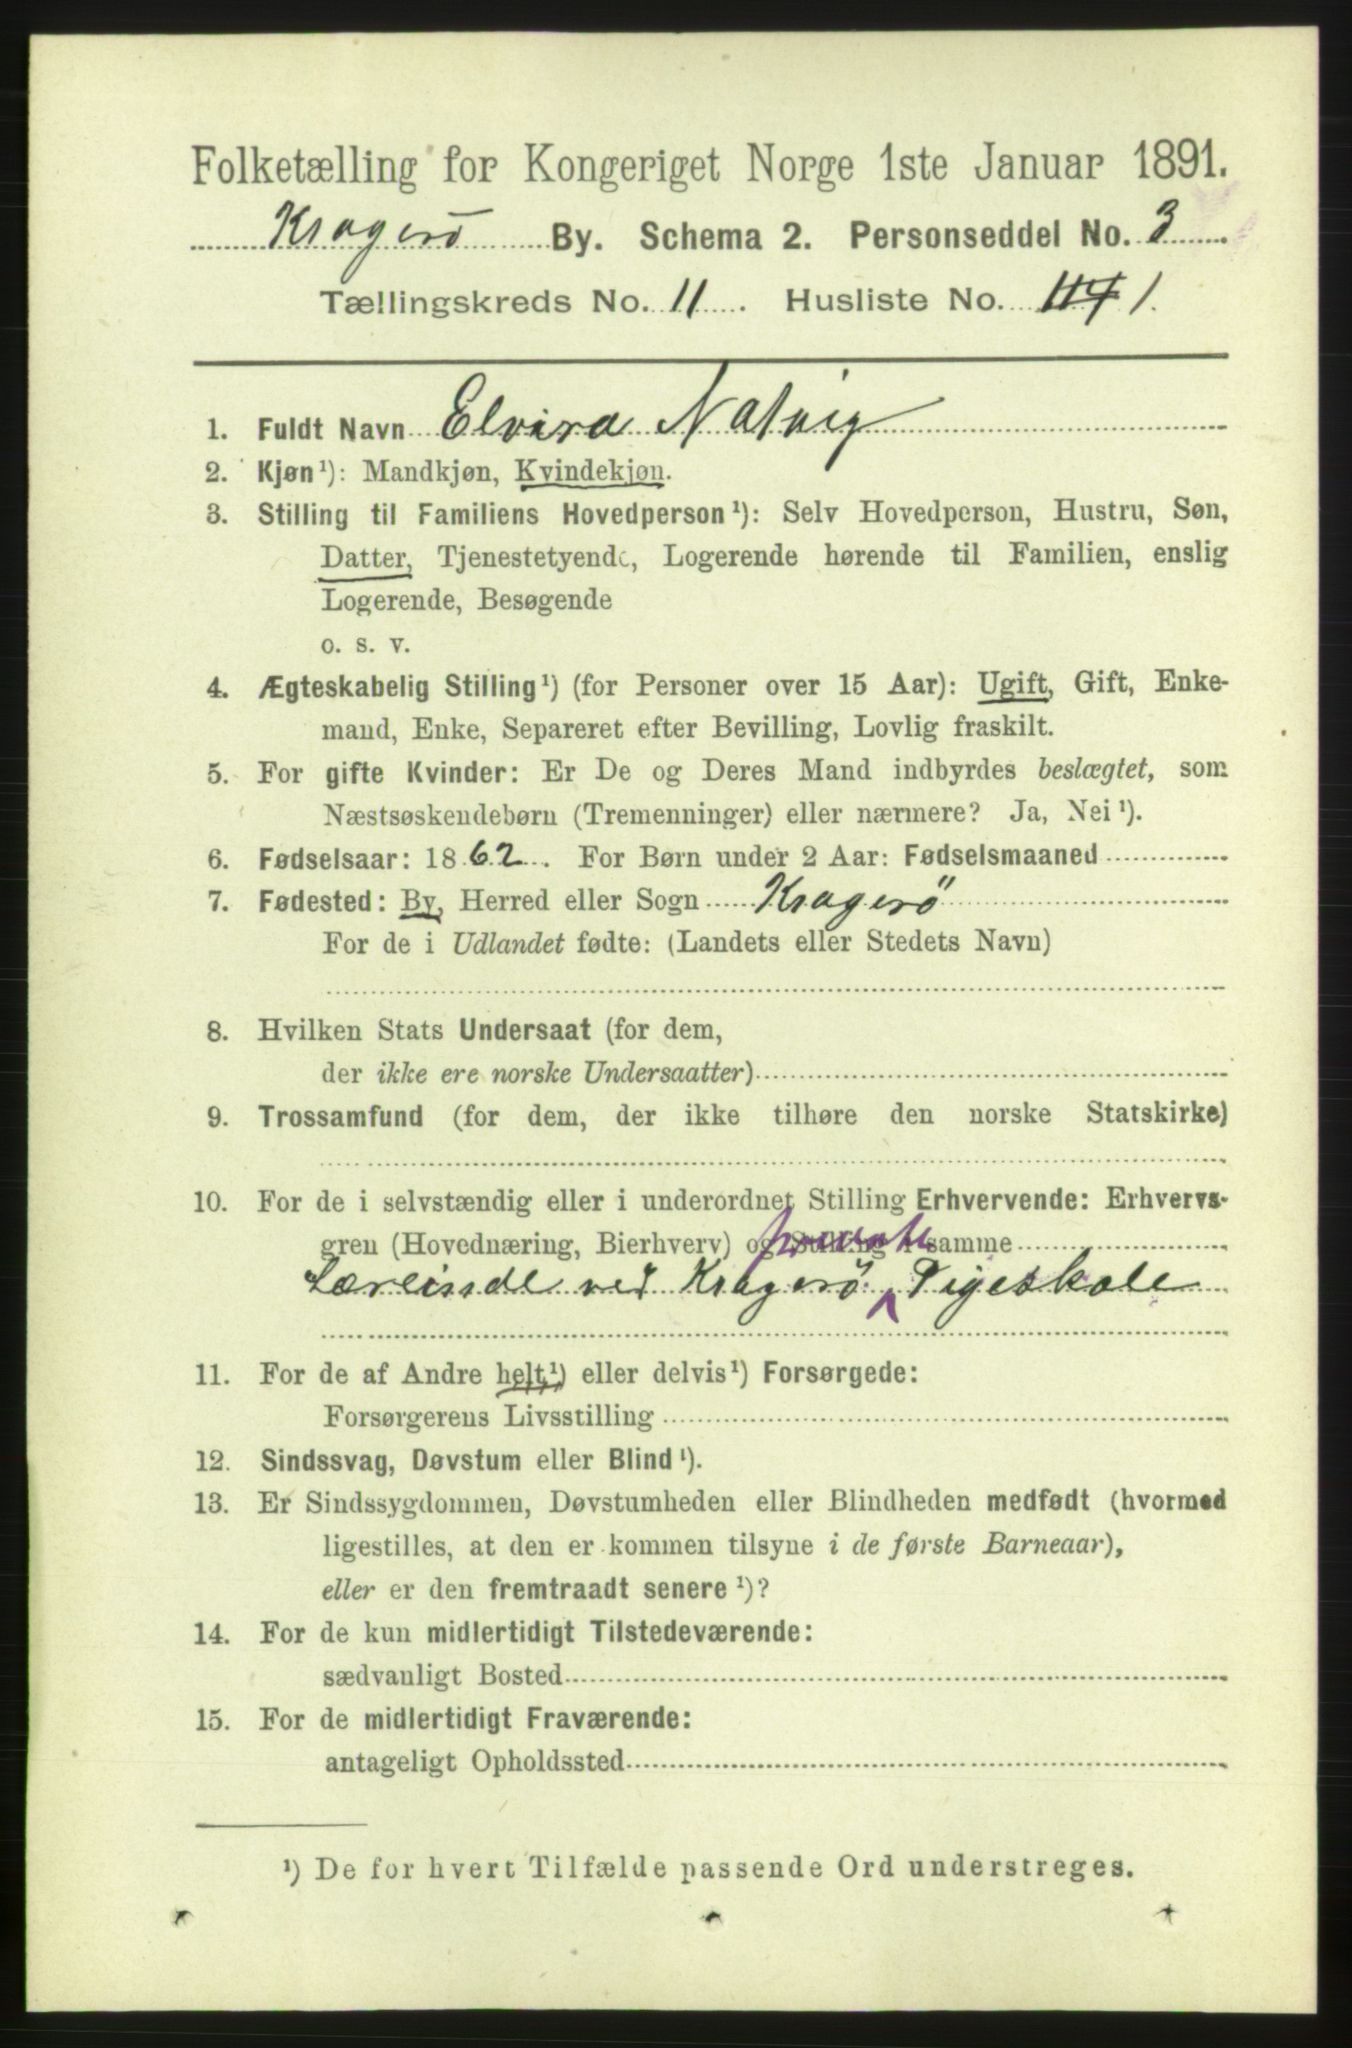 Folketælling for Kongeriget Norge 1ste Januar 1891.
Kragerö By. Schema 2. Personseddel No. 3
Tællingskreds No. 11. Husliste No. 114 1.
1. Fuldt Navn Elvira Natvig
2. Kjøn¹): Mandkjøn, Kvindekjøn.
3. Stilling til Familiens Hovedperson¹): Selv Hovedperson, Hustru, Søn,
Datter, Tjenestetyende, Logerende hørende til Familien, enslig
Logerende, Besøgende
o. s. v.
4. Ægteskabelig Stilling¹) (for Personer over 15 Aar): Ugift, Gift, Enke-
mand, Enke, Separeret efter Bevilling, Lovlig fraskilt.
5. For gifte Kvinder: Er De og Deres Mand indbyrdes beslægtet, som
Næstsøskendebørn (Tremenninger) eller nærmere? Ja, Nei¹).
6. Fødselsaar: 1862. For Børn under 2 Aar: Fødselsmaaned
7. Fødested: By, Herred eller Sogn Kragerö
For de i Udlandet fødte: (Landets eller Stedets Navn)
8. Hvilken Stats Undersaat (for dem,
der ikke ere norske Undersaatter)
9. Trossamfund (for dem, der ikke tilhøre den norske Statskirke)
10. For de i selvstændig eller i underordnet Stilling Erhvervende: Erhvervs-
gren (Hovednæring, Bierhverv) og Stilling i samme
private
Lærerinde ved Kragerö Pigeskole
11. For de af Andre helt¹) eller delvis¹) Forsørgede:
Forsørgerens Livsstilling
12. Sindssvag, Døvstum eller Blind¹).
13. Er Sindssygdommen, Døvstumheden eller Blindheden medfødt (hvormed
ligestilles, at den er kommen tilsyne i de første Barneaar),
eller er den fremtraadt senere¹)?
14. For de kun midlertidigt Tilstedeværende:
sædvanligt Bosted
15. For de midlertidigt Fraværende:
antageligt Opholdssted
¹) De for hvert Tilfælde passende Ord understreges.